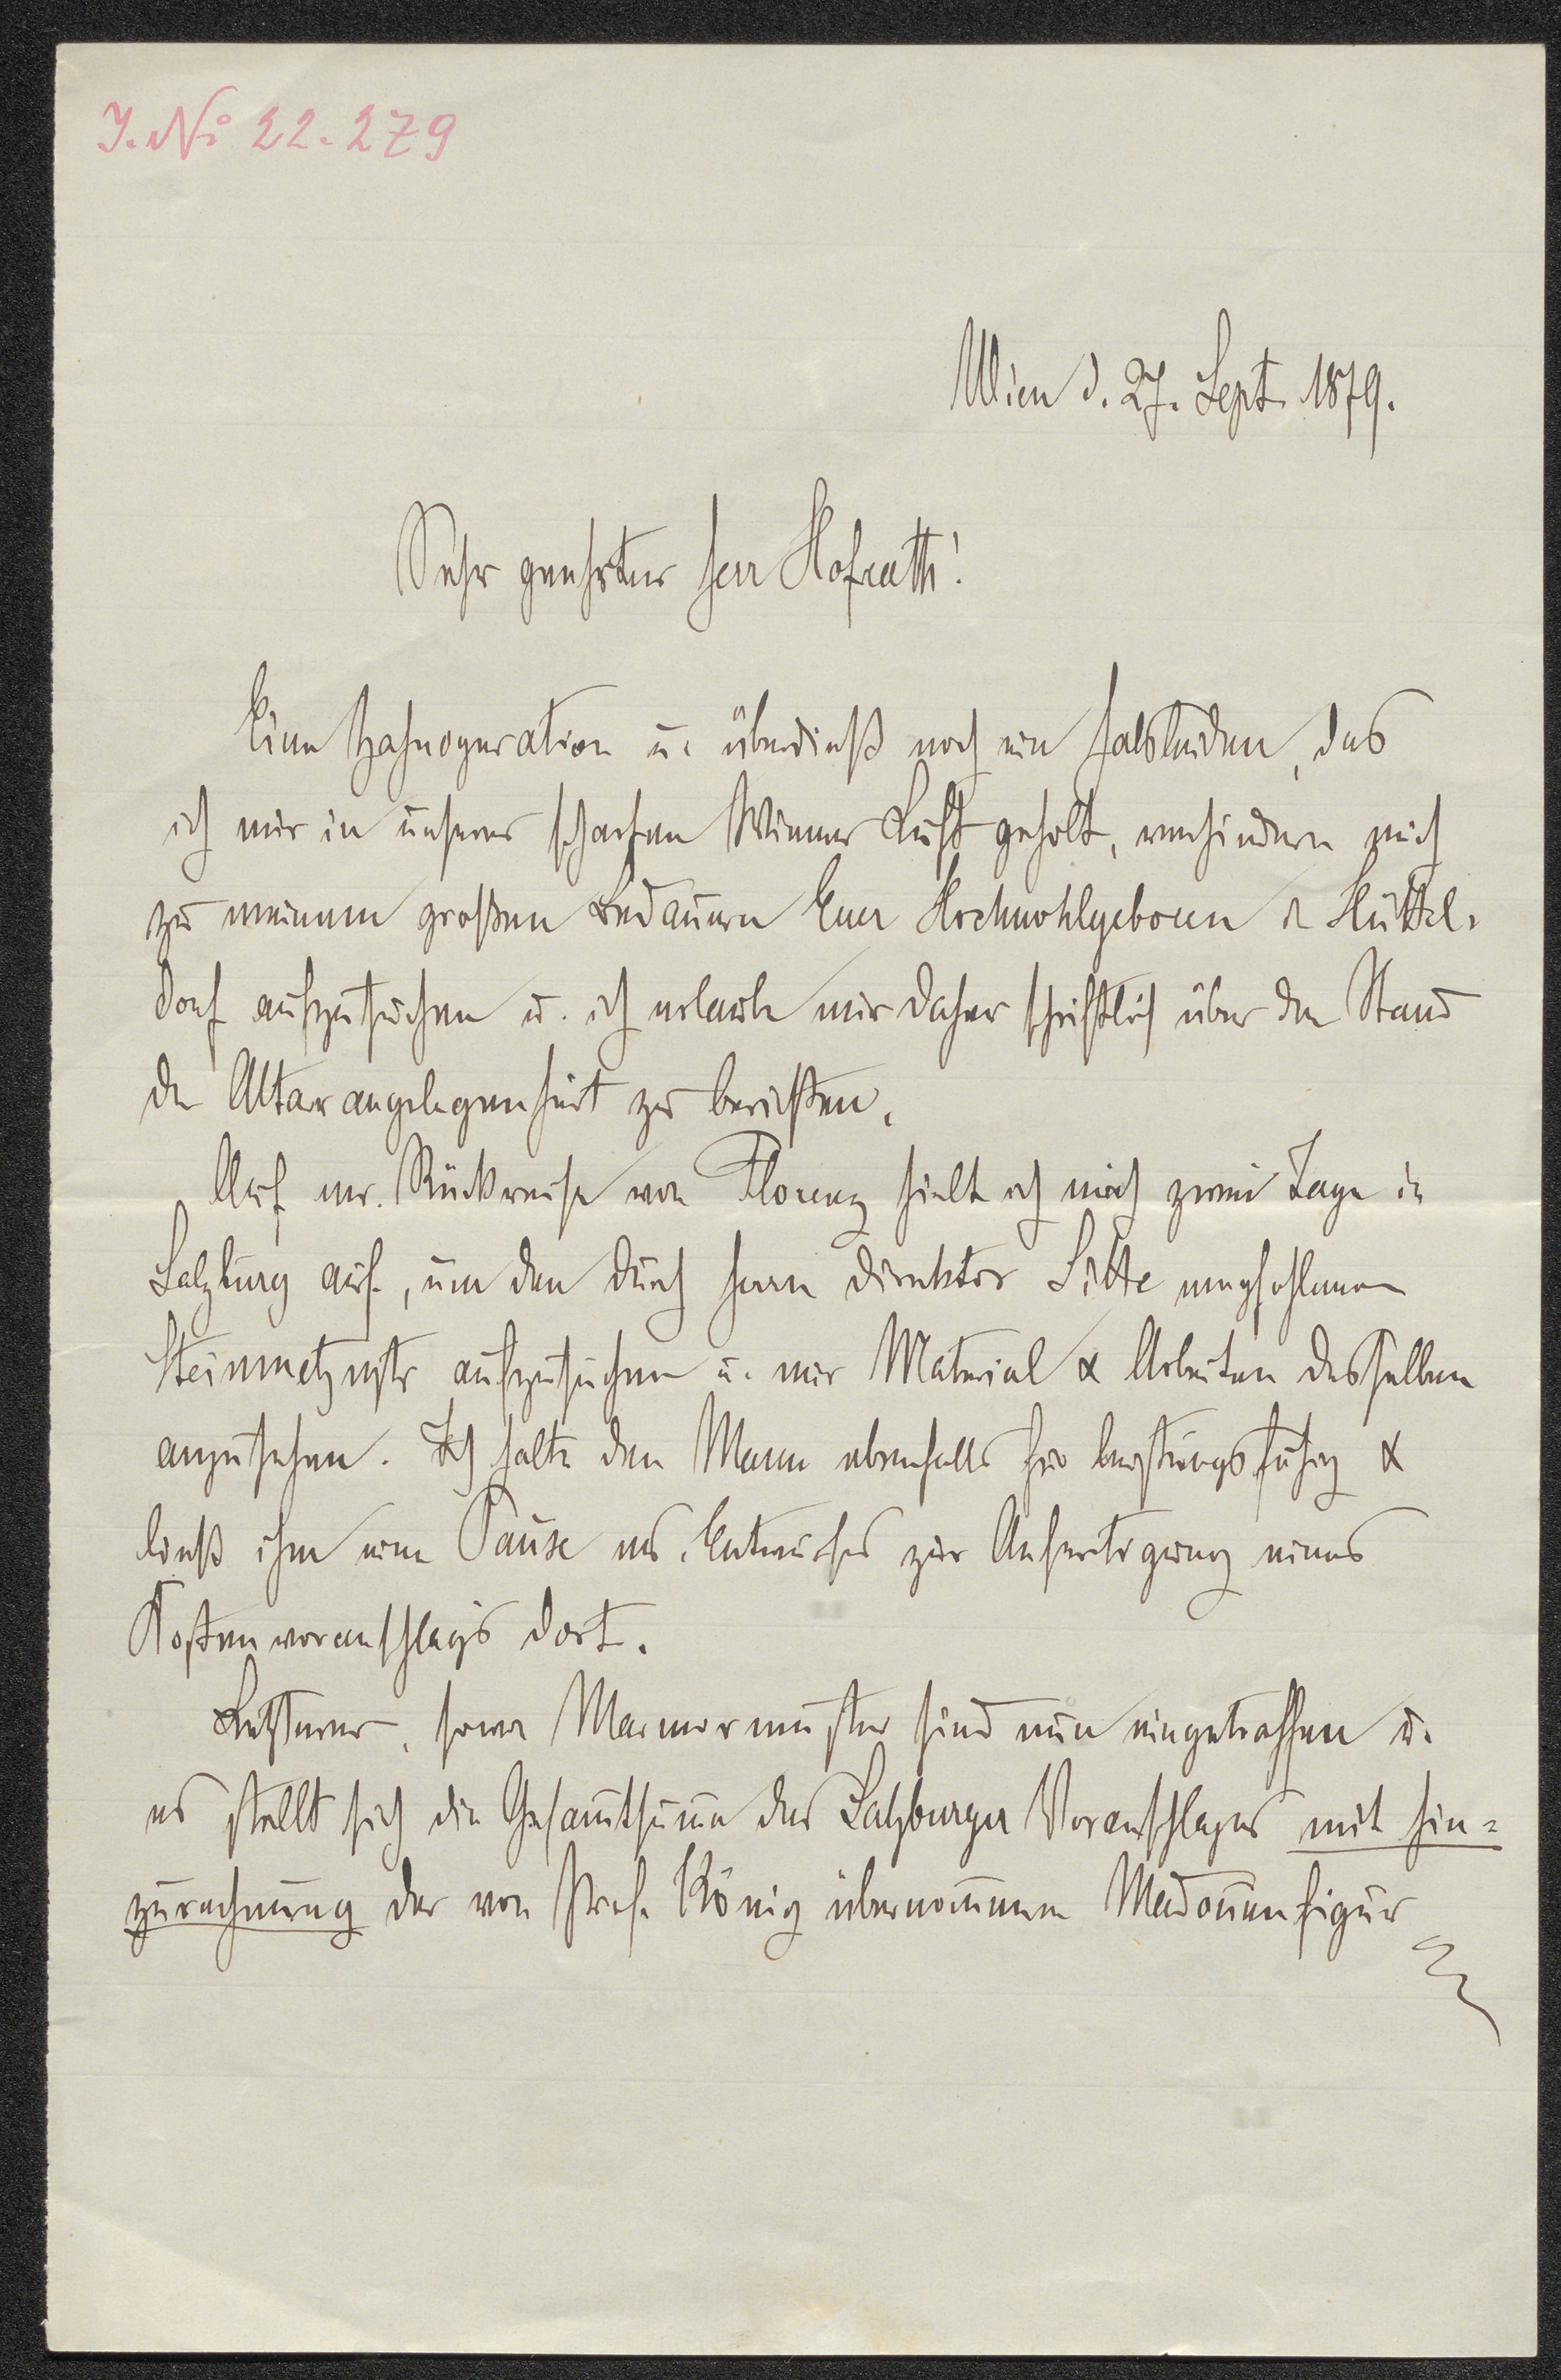 J. No 22.279
Wien d. 27. Sept. 1879.
Sehr geehrter Herr Hofrath!
Eine Zahnoperation u. überdieß noch ein Halsleiden, das
ich mir in unserer scharfen Wiener Luft geholt, verhindern mich
zu meinem großen Bedauern Euer Hochwohlgeboren in Hüttel-
dorf aufzusuchen u. ich erlaube mir daher schriftlich über den Stand
der Altarangelegenheit zu berichten.
Auf mr. Rückreise von Florenz hielt ich mich zwei Tage in
Salzburg auf, um den durch Herrn Direktor Sitte empfohlenen
Steinmetzmstr aufzusuchen u. mir Material & Arbeiten desselben
anzusehen. Ich halte den Mann ebenfalls für leistungsfähig &
ließ ihm eine Pause ms. Entwurfes zur Anfertigung eines
Kostenvoranschlags dort.
Letzterer, sowie Marmormuster sind nun eingetroffen u.
es stellt sich die Gesam̅tsum̅e des Salzburger Voranschlages mit Hin=
zurechnung der von Prof. König übernom̅enen Madon̅enfigur